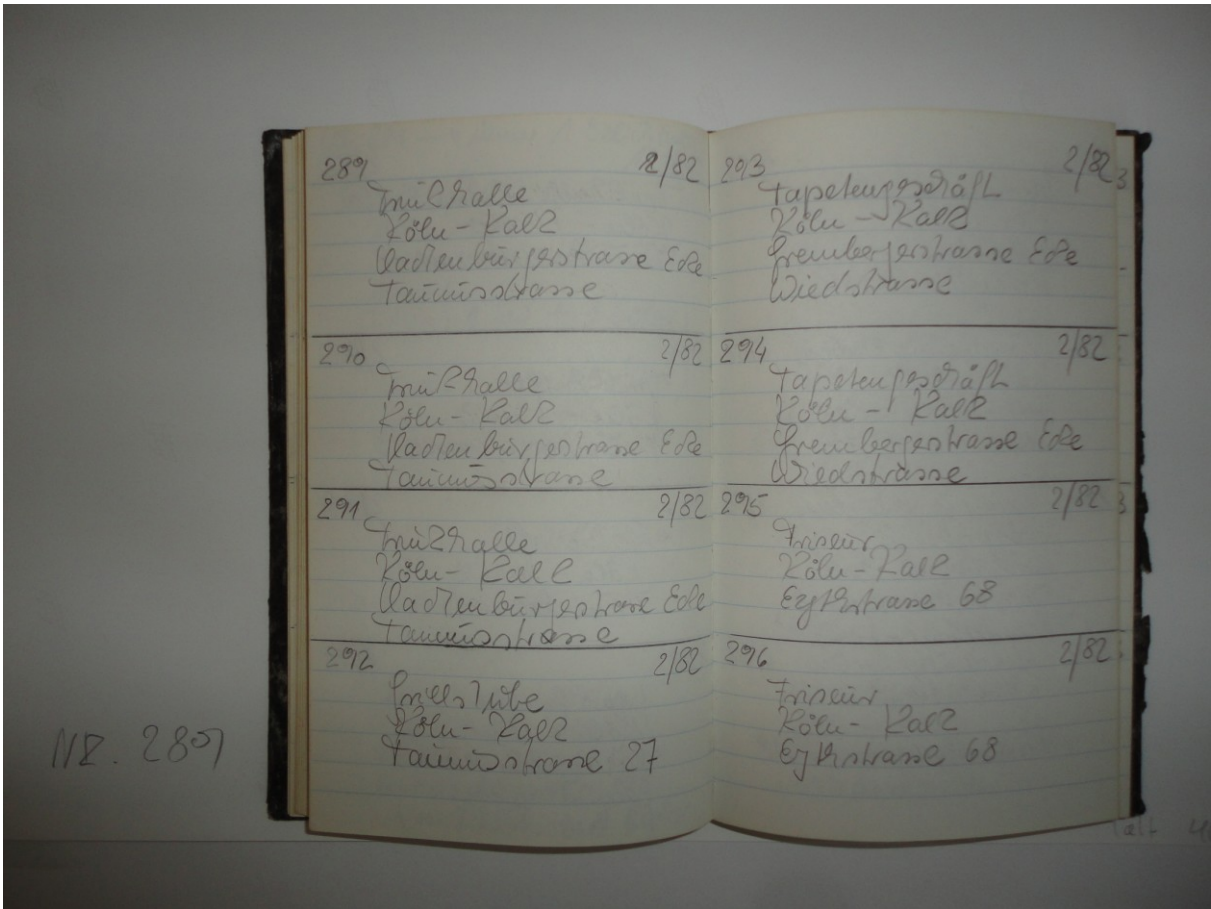 289 2/82
Trinkhalle
Köln - Kalk
Hachenburgerstrasse Ecke
Taunusstrasse
290 2/82
Trinkhalle
Köln - Kalk
Hachenburgerstrasse Ecke
Taunusstrasse
291 2/82
Trinkhalle
Köln - Kalk
Hachenburgerstrasse Ecke
Taunusstrasse
292 2/82
Grillstube
Köln - Kalk
Taunusstrasse 27
293 2/82
Tapetengeschäft
Köln - Kalk
Grembergerstrasse Ecke
Wiedstrasse
294 2/82
Tapetengeschäft
Köln - Kalk
Grembergerstrasse Ecke
Wiedstrasse
295 2/82
Friseur
Köln - Kalk
Eythstrasse 68
296 2/82
Friseur
Köln - Kalk
Eythstrasse 68
NR. 289